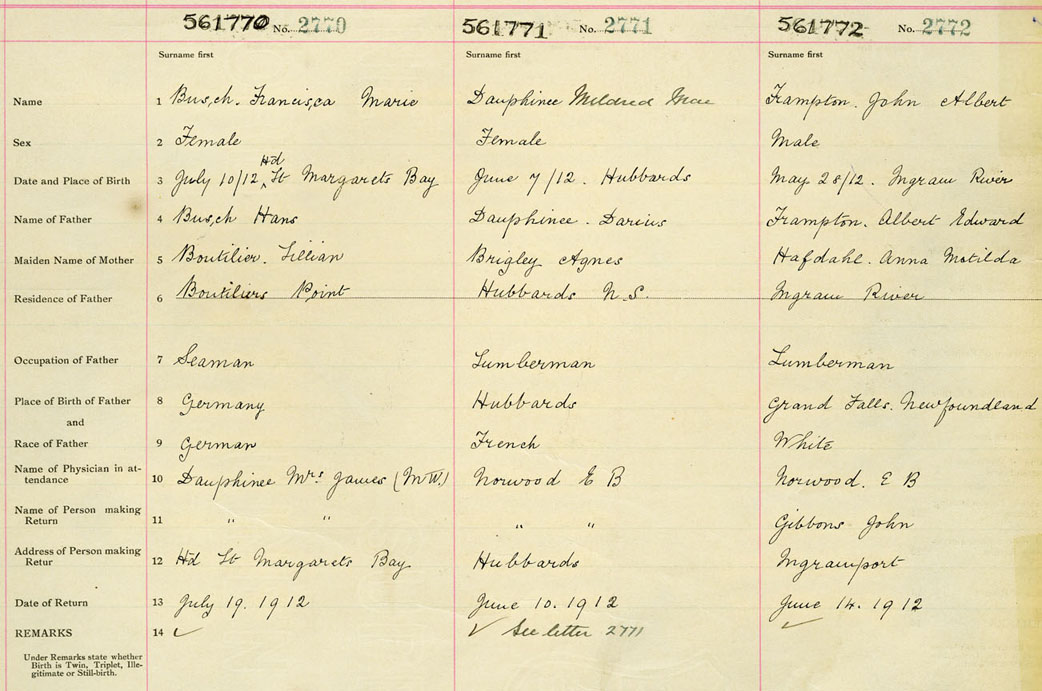 561770 No. 2770 561771 No. 2771 561772 No. 2772
Surname first Surname first Surname first
Name 1 Busch. Francisca Marie Dauphinee Mildred Mae Frampton. John Albert
Sex 2 Female Female Male
Hd
Date and Place of Birth 3 July 10/12 ^ St Margarets Bay June 7/12. Hubbards May 28/12. Ingram River
Name of Father 4 Busch Hans Dauphinee. Darius Frampton. Albert Edward
Maiden Name of Mother 5 Boutilier. Lillian Brigley Agnes Hafdahl. Anna Matilda
Residence of Father 6 Boutiliers Point Hubbards N.S. Ingram River
Occupation of Father 7 Seaman Lumberman Lumberman
Place of Birth of Father 8 Germany Hubbards Grand Falls. Newfoundland
and
Race of Father 9 German French White
Name of Physician in at-
tendance 10 Dauphinee Mrs. James (M.W.) Norwood E B Norwood. E B
Name of Person making
Return 11 " " " " Gibbons John
Address of Person making
Retur 12 Hd St Margarets Bay Hubbards Ingramport
Date of Return 13 July 19. 1912 June 10. 1912 June 14. 1912
REMARKS 14 ✓ ✓ See letter 2771 ✓
Under Remarks state whether
Birth is Twin, Triplet, Ille-
gitimate or Still-birth.